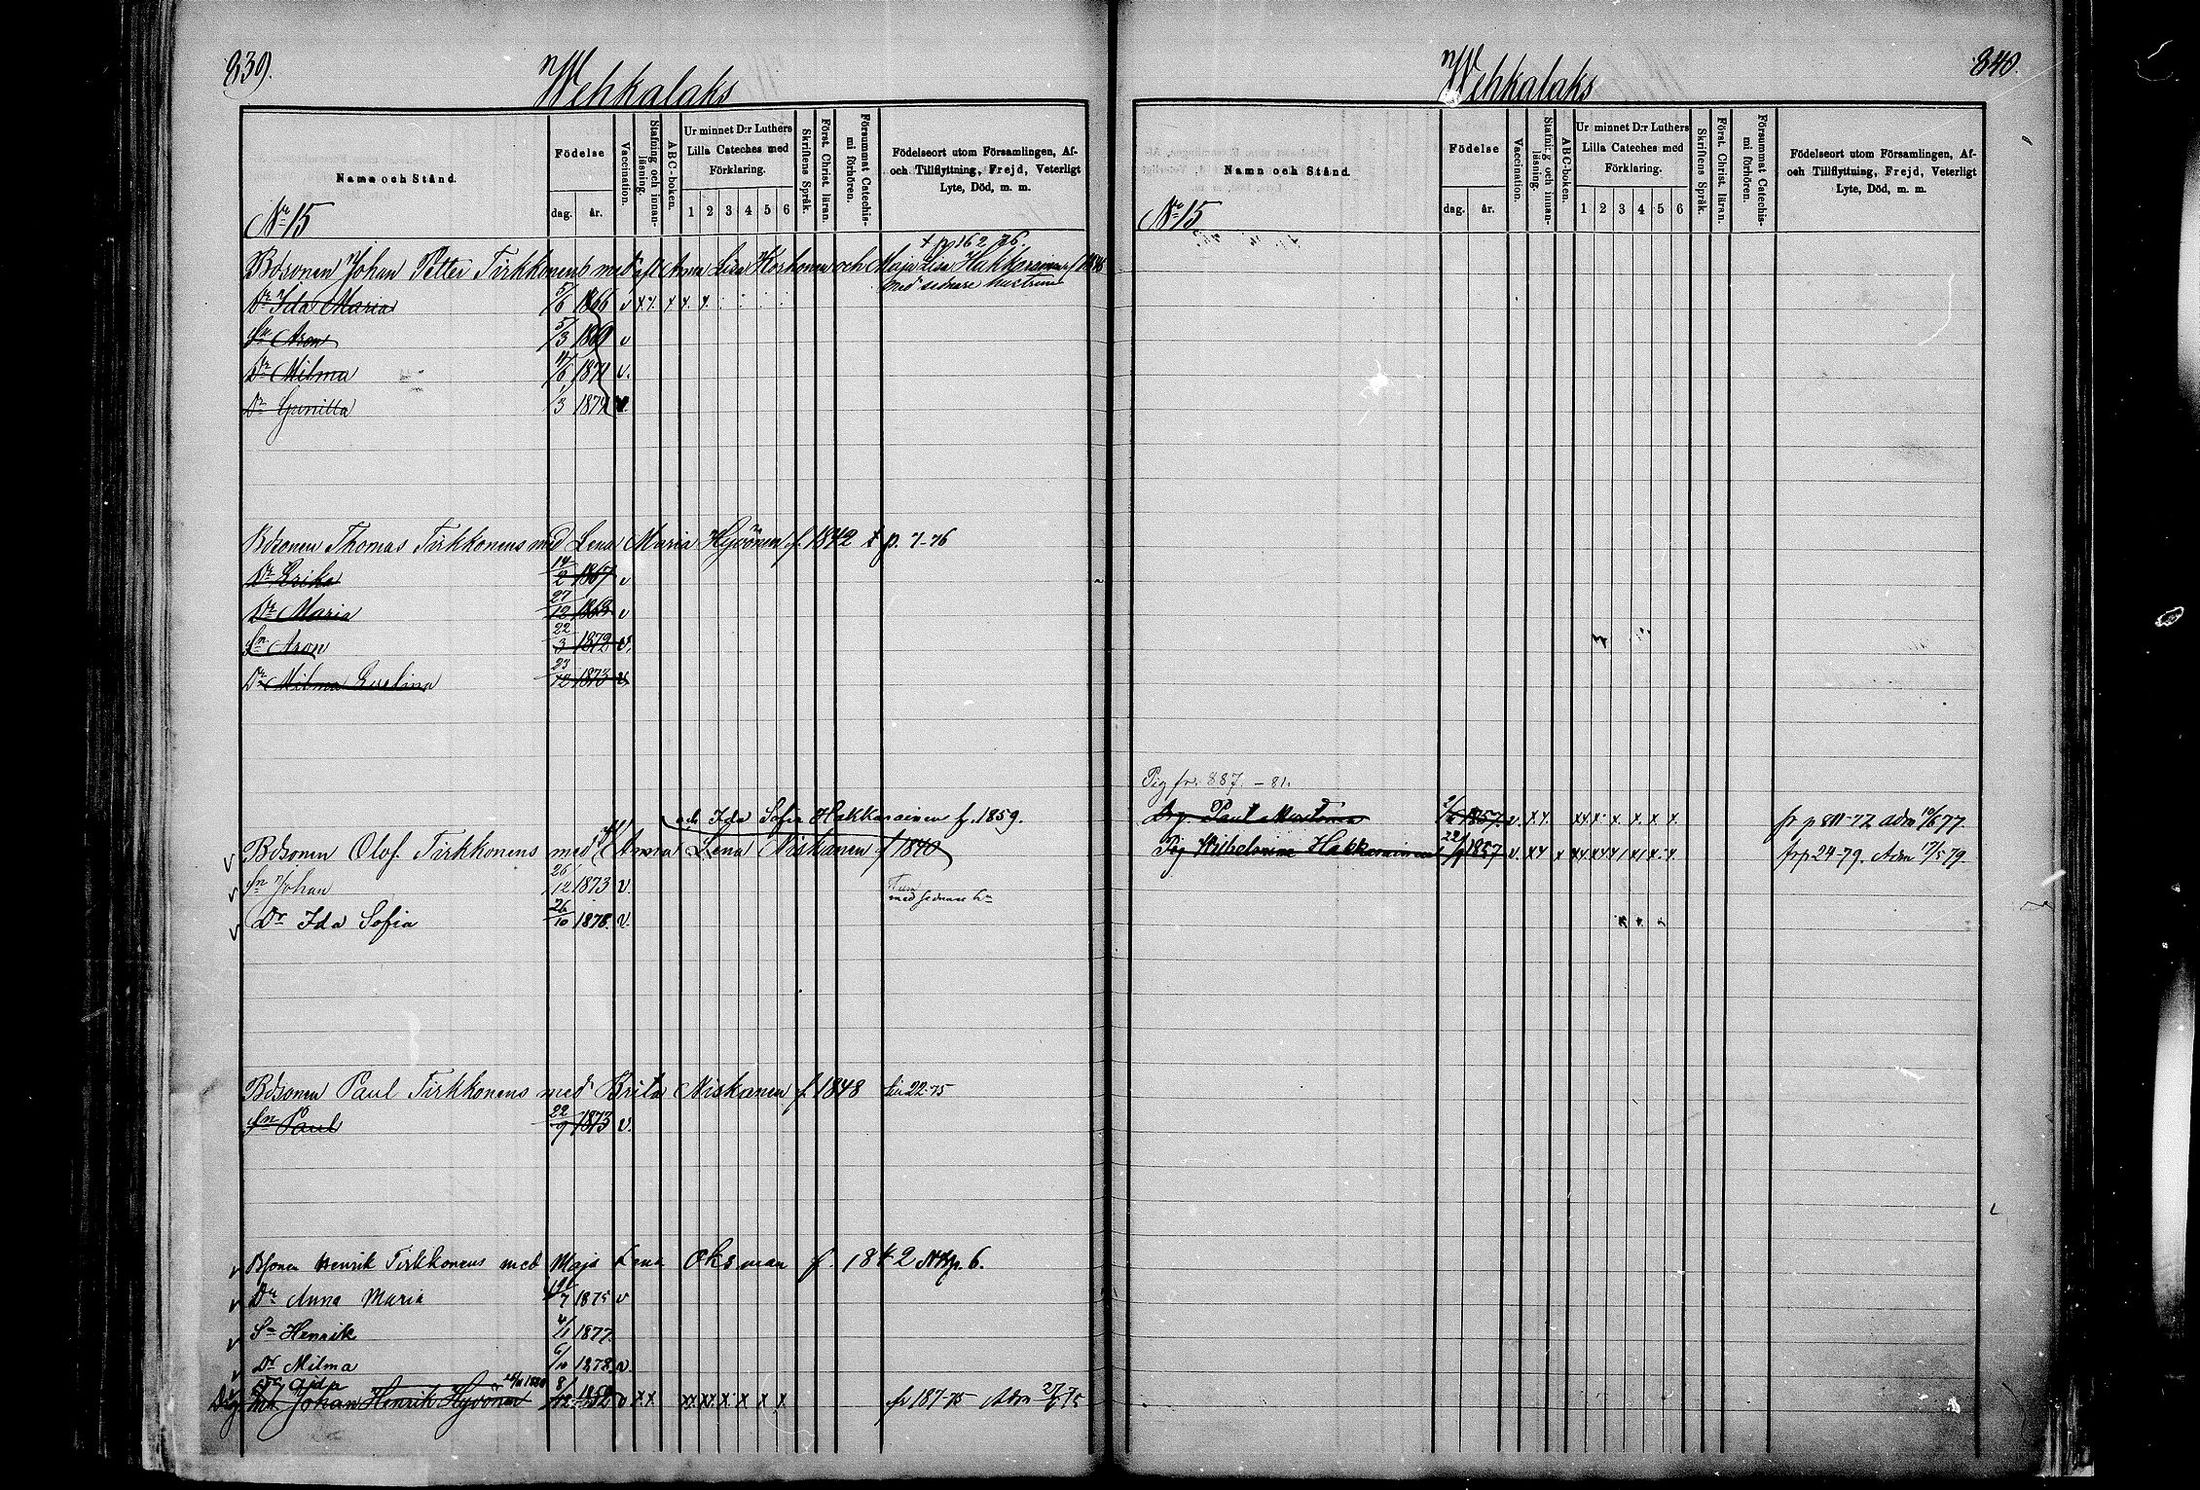 839.
Wehkalaks
Namn och Stånd.
Födelse
dag. år.
Vaccination.
Stafning och innanläsning.
ABC-boken.
Ur minnet D:r Luthers Lilla Cateches med Förklaring.
1 2 3 4 5 6
Skriftens Språk.
Först. Christ. läran.
Försummat Catechismi förhören.
Födelseort utom Församlingen, Af- och Tillflyttning, Frejd, Veterligt Lyte, Död, m. m.
No 15
Bdsonen Johan Petter Tirkkonens med Anna Lisa Korhonen och Maja Lisa Hakkarainen
med senare hustrun
Dr Ida Maria 5/6 1866 v
Sn Aron 5/3 1869 v
Dr Milma 1871 v.
Dr Gunilla 1/3 1874
Bdsonen Thomas Tirkkonens med Lena Maria Hyvönen f. 1842 p. 7-76
Dr Erika 1867 v
Dr Maria 27/12 1868 v
Sn Aron 22/3 1872 v.
Dr Milma Evelina 23/12 1873 v
och Ida Sofia Hakkarainen f. 1859.
Bdsonen Olof Tirkkonens med (Anna Lena Niskanen f 1840)
Sn Johan 26/12 1873 v.
Dr Ida Sofia 26/10 1878. v.
Bdsonen Paul Tirkkonens med Brita Niskanen f. 1848 22-75
Sn Paul 22/9 1873 v.
Bdsonen Henrik Tirkkonens med Maja Lena Oksman f. 1842 p. 6.
Dr Anna Maria 1875 v
Sn Henrik 1877.
Dr Milma 6/10 1878. v.
Aida
Drg Johan Henrik Hyvönen 8/12 1852 v x x x x x x x x x fr 187-75
840.
Wehkalaks
Namn och Stånd.
Födelse
dag. år.
Vaccination.
Stafning och innanläsning.
ABC-boken.
Ur minnet D:r Luthers Lilla Cateches med Förklaring.
1 2 3 4 5 6
Skriftens Språk.
Först. Christ. läran.
Försummat Catechismi förhören.
Födelseort utom Församlingen, Af- och Tillflyttning, Frejd, Veterligt Lyte, Död, m. m.
No 15
Pig fr. 887. - 81.
Drg Paul 1857. v.
Pig Wilhelmina Hakkarainen 22/9 1857 v. fr p 24-79. Adm 17/5 79.